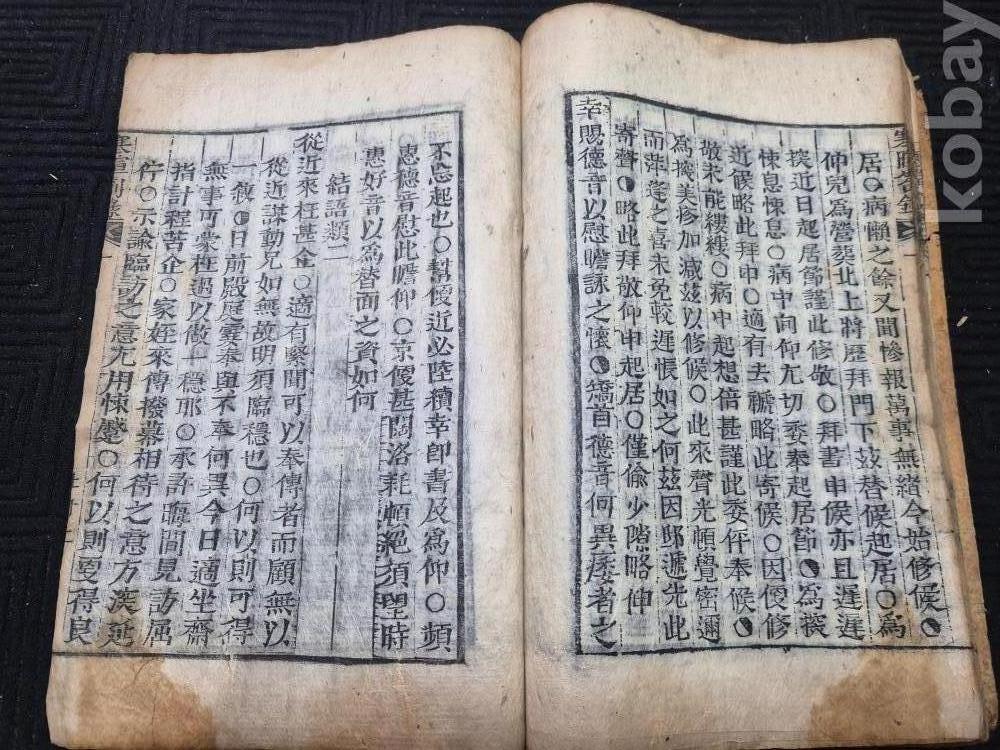 居○病懶之餘又聞慘報萬事無緒今始修候
仲兄爲營葬北上將歷拜門下玆替候起居○爲
探近日起居節謹此修敬○拜書申候亦且遲遲
悚息悚息○病中向仰尤切委奉起居節 爲探
近候略此拜申○適有去 略此寄候○因便修
敬未能縷縷○病中起想倍甚謹此委伻奉候
爲探美疹加減玆以修候○此來聲光頓覺密邇
而萍蓬之喜未免較遲悵如之何玆因郵遞先此
寄聲 略此拜敬仰申起居○僅偷少隙略伸
幸賜德音以慰瞻詠之懷 矯首德音何異痿者之
不忘起也○幫便近必陸續幸卽書及爲仰○頻
惠德音慰此瞻仰○京便甚闊洛耗頓絕須望時
惠好音以爲替面之資如何
結語類二
從近來枉甚企○適有緊聞可以奉傳者而顧無以
從近謀動兄如無故明須臨穩也○何以則可得
一敘 日前殿庭霎奉與不奉何異今日適坐齋
無事可蒙枉過以做一穩耶○承許晦間見訪屈
指計程苦企○家姪來傳撥幕相待之意方渼延
行○示諭臨訪之意尤用悚蹙○何以則更得良
寒暄箚錄
kobay